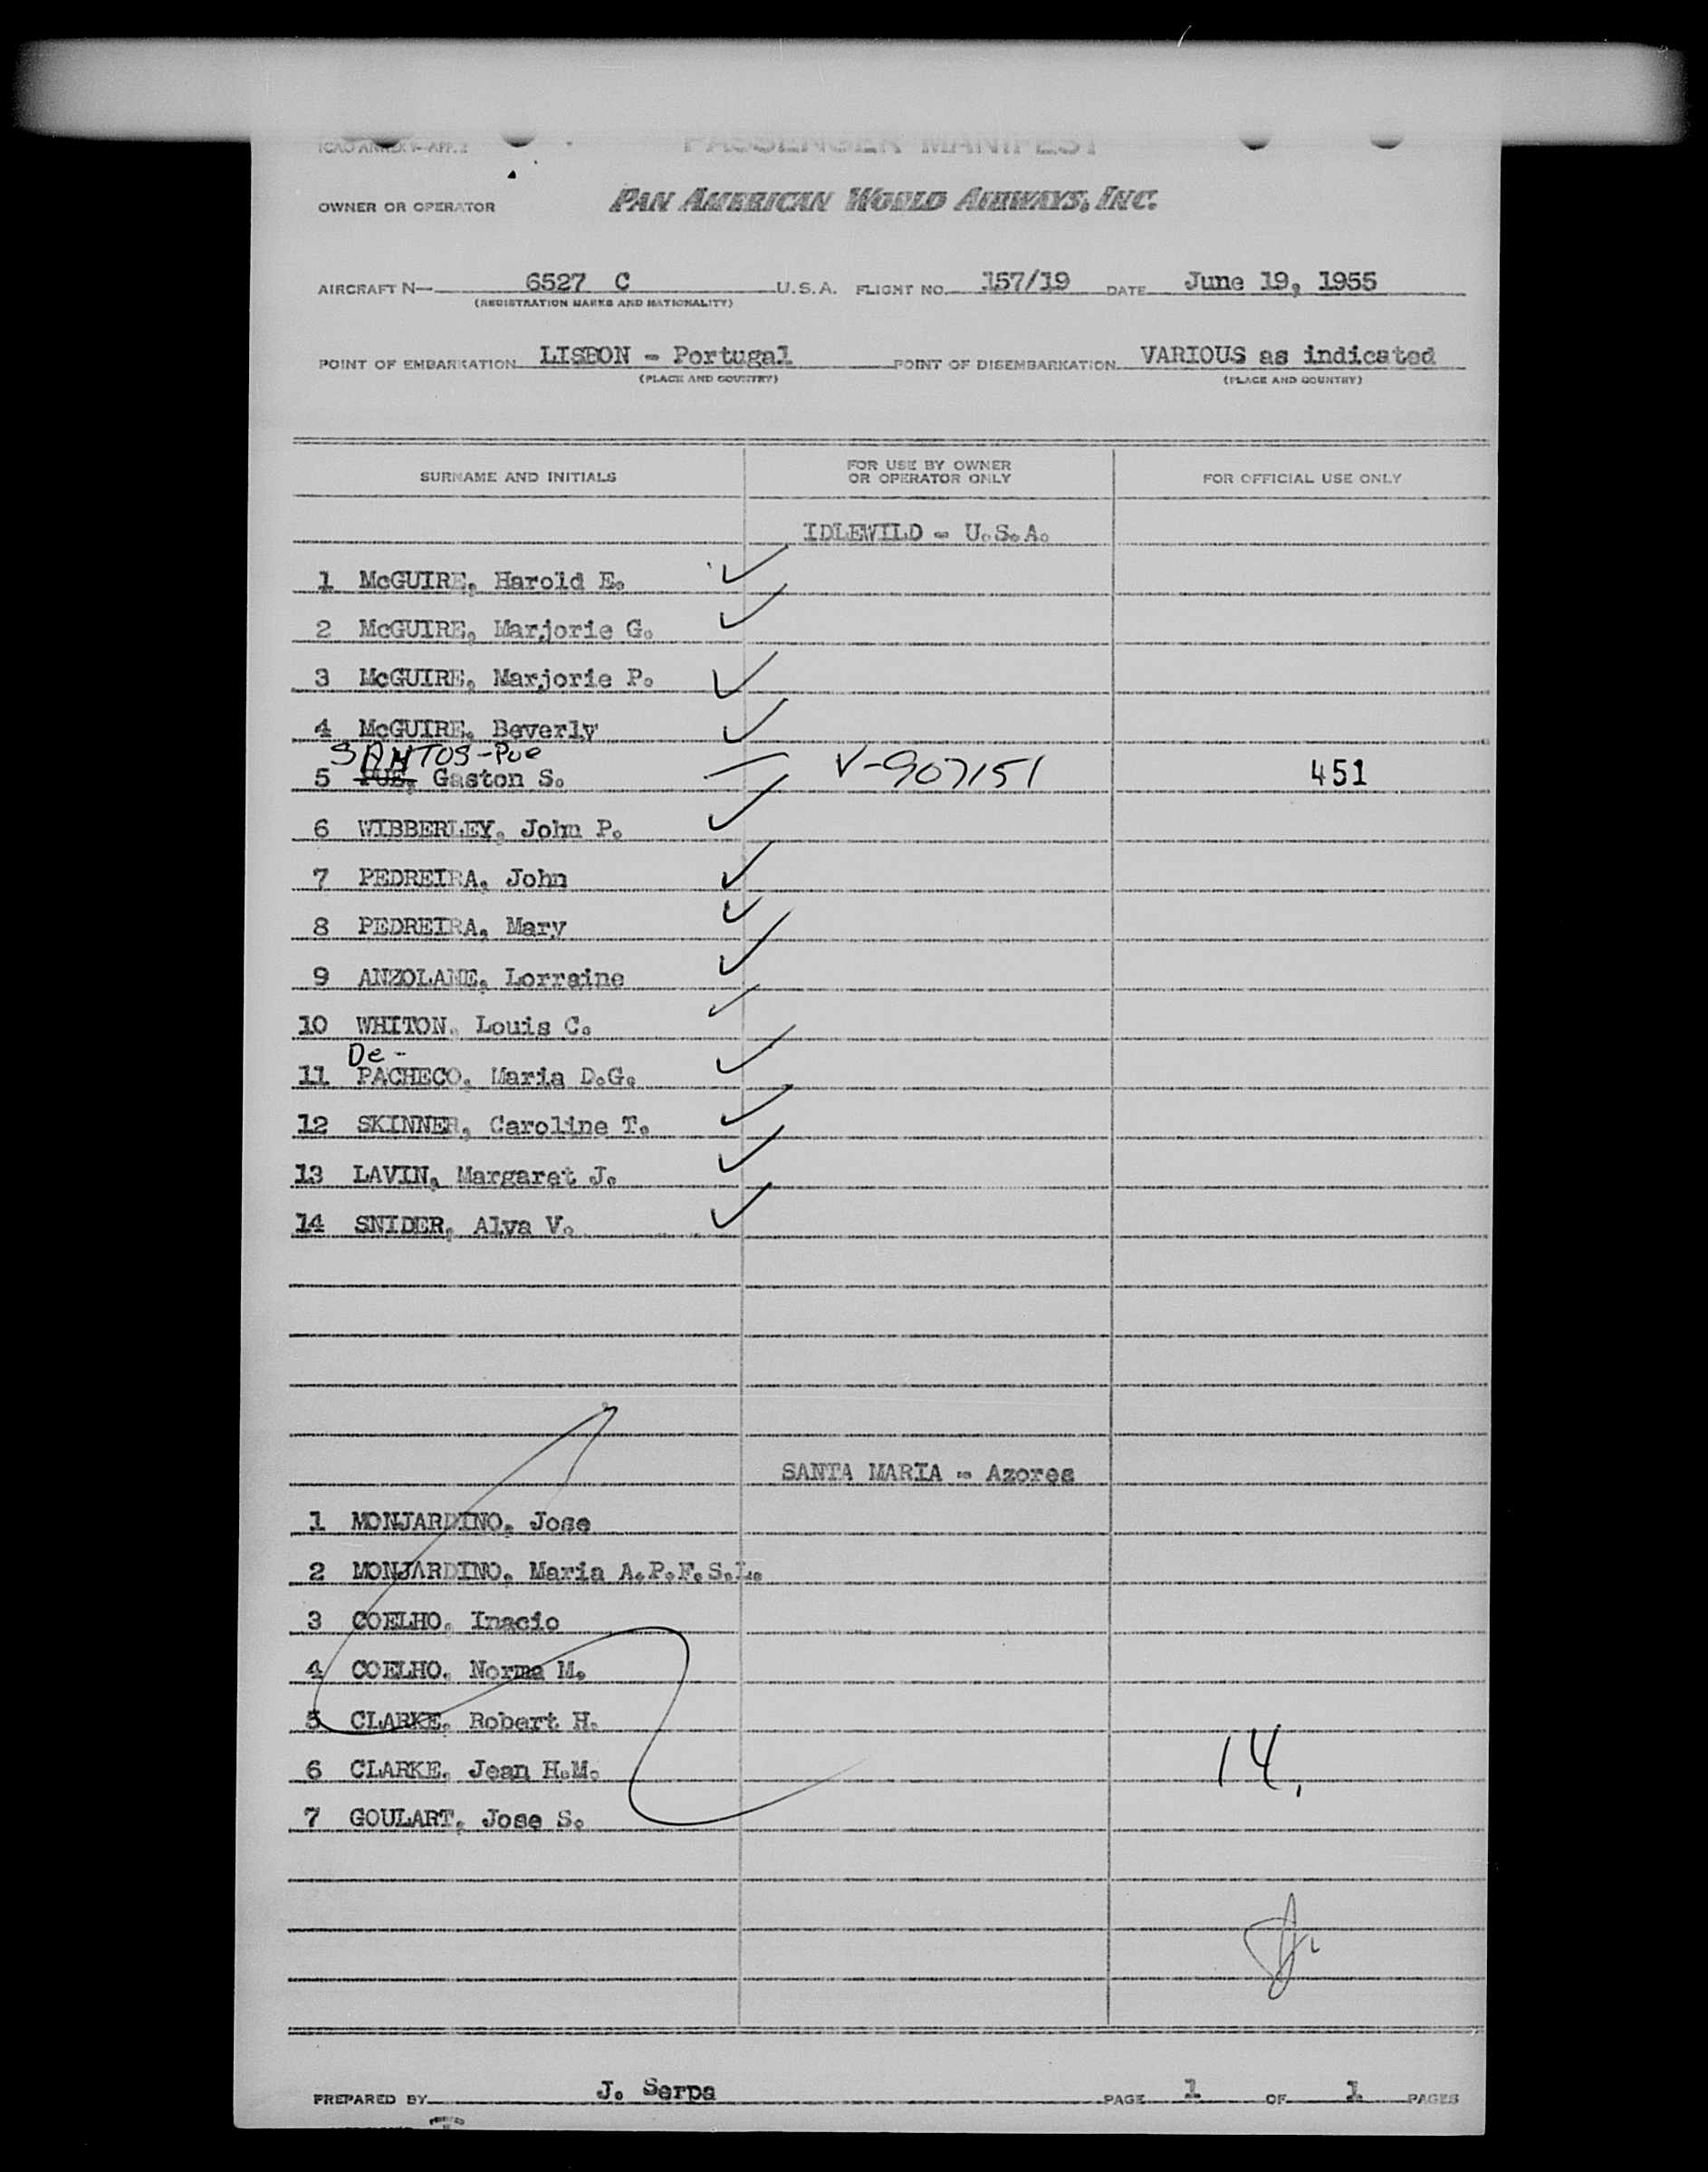 ICAO ANNEX 9-APP. 2
PASSENGER MANIFEST
OWNER OR OPERATOR PAN AMERICAN WORLD AIRWAYS, INC.
AIRCRAFT N— 6527 C U.S.A. FLIGHT NO. 157/19 DATE June 19, 1955
(REGISTRATION MARKS AND NATIONALITY)
POINT OF EMBARKATION LISBON - Portugal POINT OF DISEMBARKATION VARIOUS as indicated
(PLACE AND COUNTRY) (PLACE AND COUNTRY)
SURNAME AND INITIALS FOR USE BY OWNER OR OPERATOR ONLY FOR OFFICIAL USE ONLY
IDLEWILD - U.S.A.
1 McGUIRE, Harold E.
2 McGUIRE, Marjorie G.
3 McGUIRE, Marjorie P.
4 McGUIRE, Beverly
SANTOS-Pue
5 PUE, Gaston S. V-907151 451
6 WIBBERLEY, John P.
7 PEDREIRA, John
8 PEDREIRA, Mary
9 ANZOLANE, Lorraine
10 WHITON, Louis C.
De-
11 PACHECO, Maria D.G.
12 SKINNER, Caroline T.
13 LAVIN, Margaret J.
14 SNIDER, Alva V.
SANTA MARIA - Azores
1 MONJARDINO, Jose
2 MONJARDINO, Maria A.P.F.S.L.
3 COELHO, Inacio
4 COELHO, Norma M.
5 CLARKE, Robert H.
6 CLARKE, Jean H.M. 14.
7 GOULART, Jose S.
PREPARED BY J. Serpa PAGE 1 OF 1 PAGES